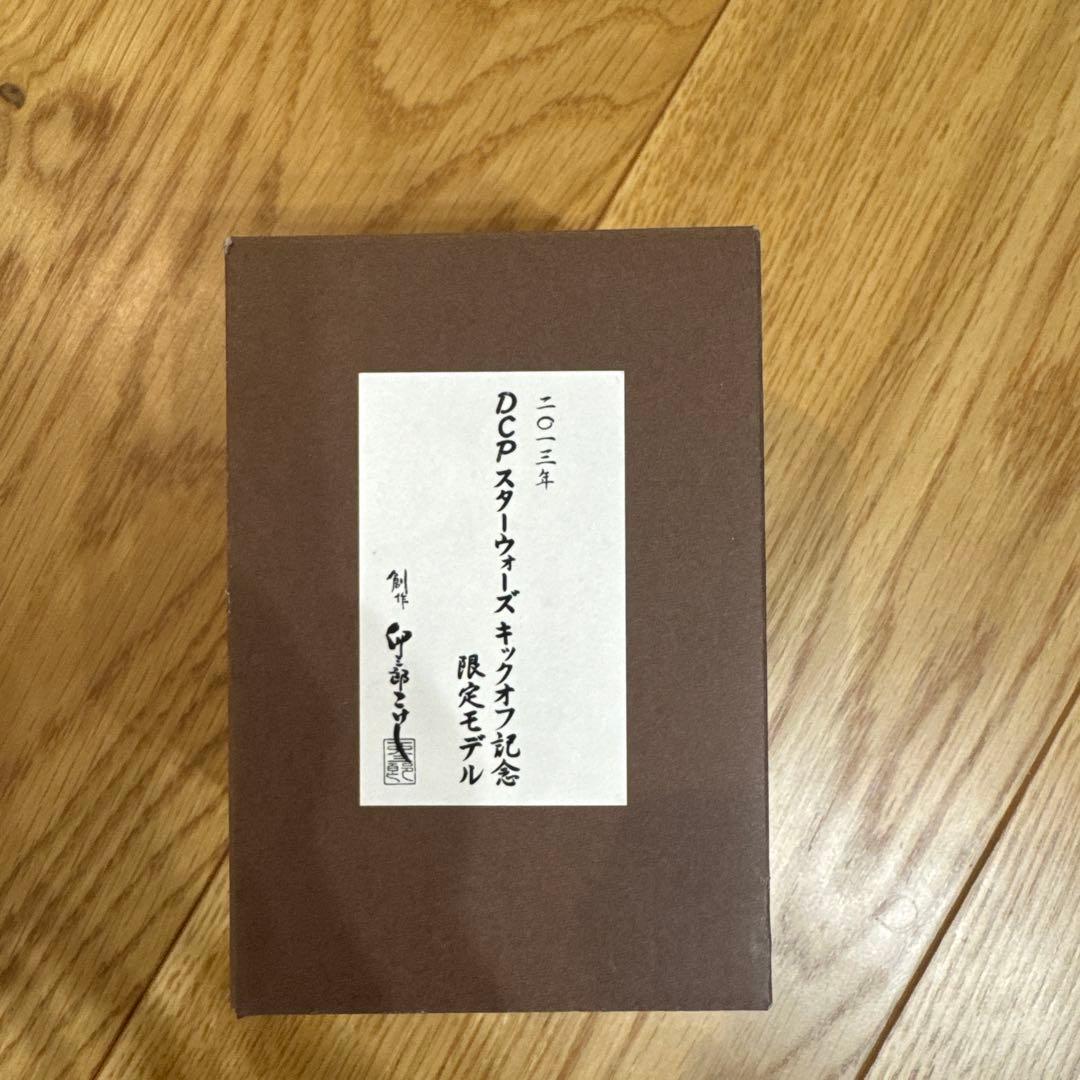 二〇一三年
DCP スターウォーズ キックオフ記念
限定モデル
創作 卯三郎こけし